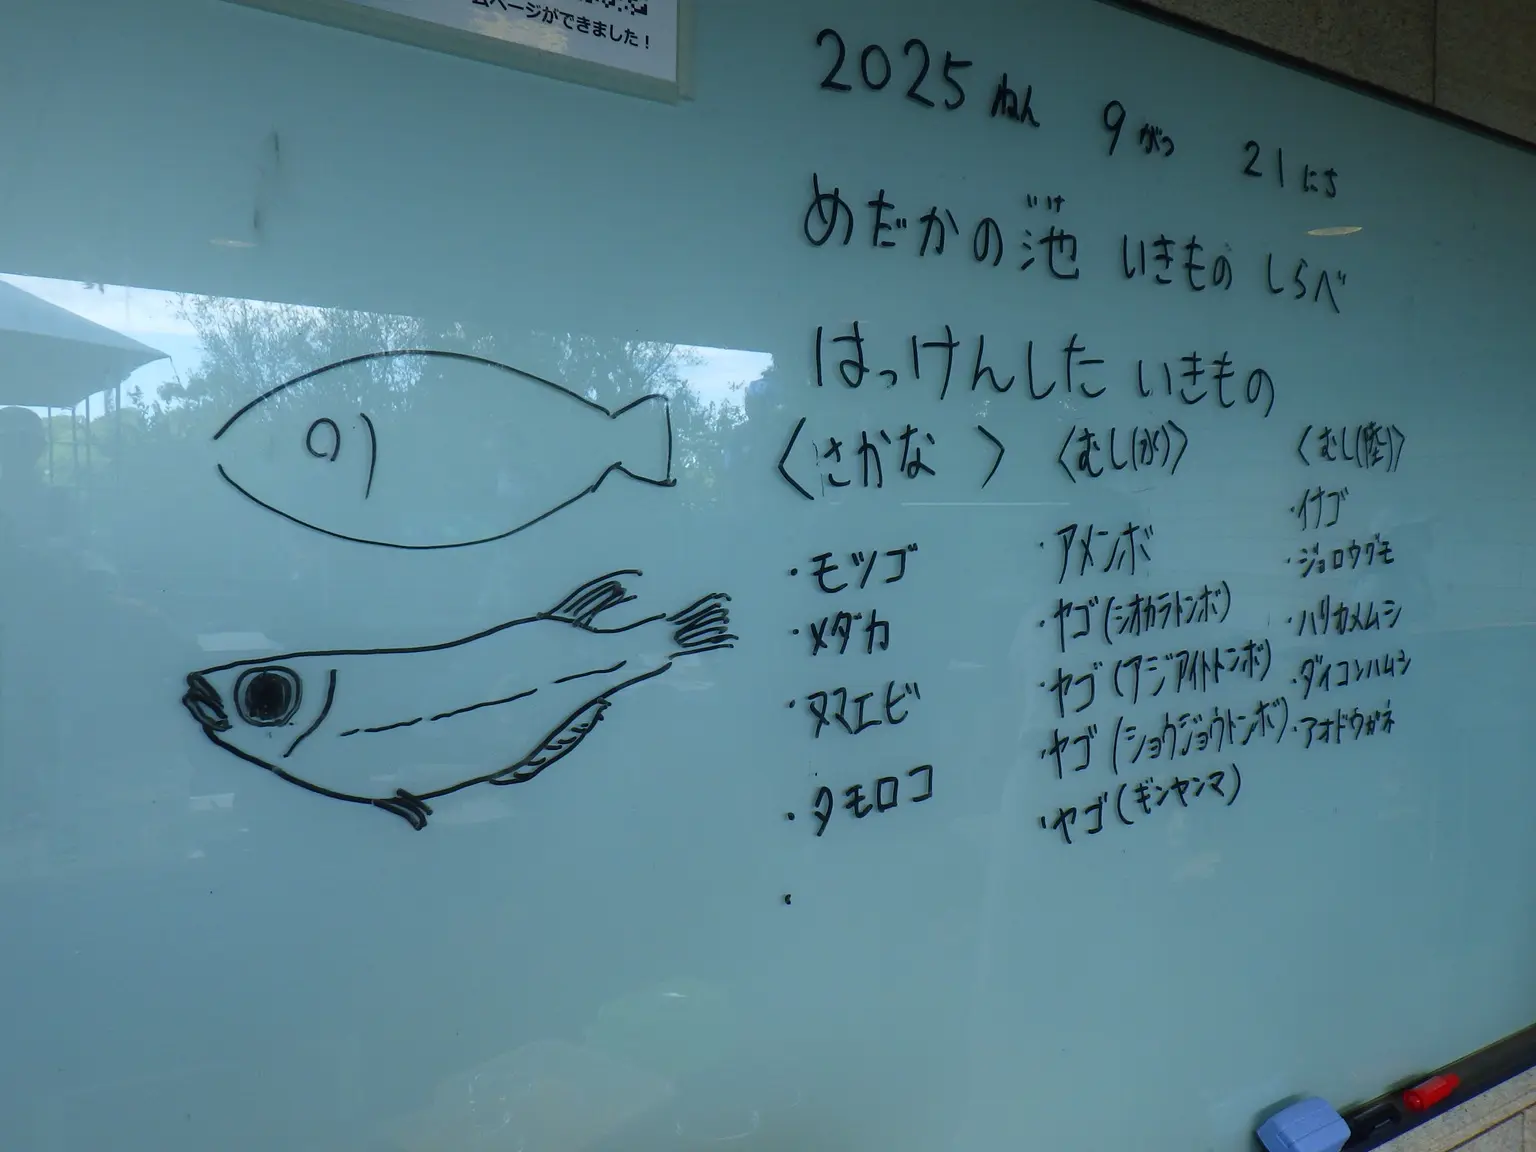 ムページができました！
2025ねん 9がつ 21にち
いけ
めだかの池 いきもの しらべ
はっけんした いきもの
〈さかな〉
・モツゴ
・メダカ
・ヌマエビ
・タモロコ
・
〈むし(水)〉
・アメンボ
・ヤゴ(シオカラトンボ)
・ヤゴ(アジアイトトンボ)
・ヤゴ(ショウジョウトンボ)
・ヤゴ(ギンヤンマ)
〈むし(陸)〉
・イナゴ
・ジョロウグモ
・ハリカメムシ
・ダイコンハムシ
・アオドウガネ